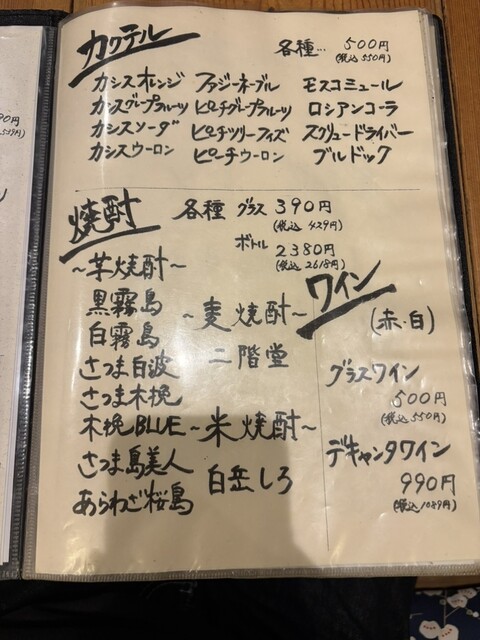 カクテル
各種… 500円
(税込 550円)
カシスオレンジ ファジーネーブル モスコミュール
カシスグレープフルーツ ピーチグレープフルーツ ロシアンコーラ
カシスソーダ ピーチツリーフィズ スクリュードライバー
カシスウーロン ピーチウーロン ブルドック
焼酎
各種 グラス 390円
(税込 429円)
ボトル 2380円
(税込 2618円)
~芋焼酎~
黒霧島
白霧島
さつま白波
さつま木挽
木挽BLUE
さつま島美人
あらわざ桜島
~麦焼酎~
二階堂
~米焼酎~
白岳しろ
ワイン
(赤・白)
グラスワイン
500円
(税込 550円)
デキャンタワイン
990円
(税込 1089円)